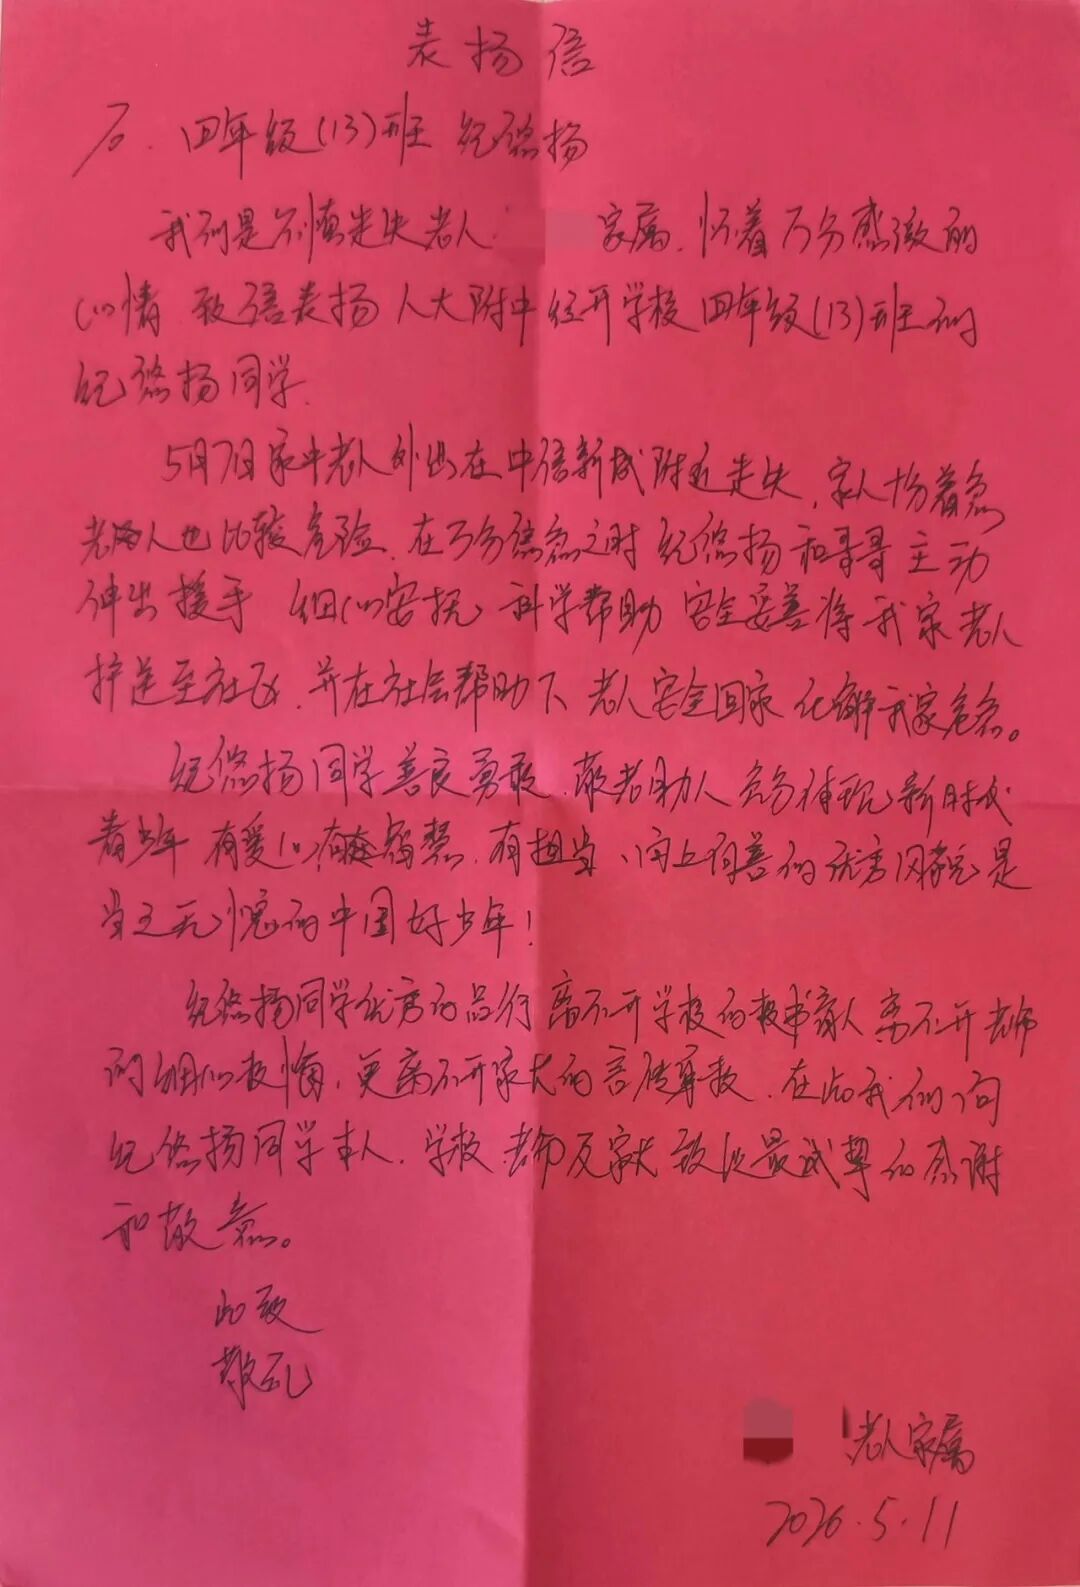 表扬信
四年级(13)班 纪悠扬
我们是不慎走失老人 家属,怀着万分感激的
心情 致信表扬 人大附中经开学校四年级(13)班的
纪悠扬同学.
5月7日家中老人外出在中信新城附近走失,家人十分着急
老人也比较危险,在万分焦急之时 纪悠扬和哥哥主动
伸出援手 细心安抚 科学帮助 安全妥善将我家老人
护送至社区,并在社会帮助下 老人安全回家 化解我家危急。
纪悠扬同学善良勇敢,敬老助人 充分体现新时代
青少年 有爱心 有智慧,有担当、向上向善的优秀风貌 是
当之无愧的中国好少年!
纪悠扬同学优秀的品行 离不开学校的教书育人 离不开老师
的细心教悔,更离不开家长的言传身教,在此我们向
纪悠扬同学本人,学校,老师及家长致以最诚挚的感谢
和敬意。
此致
敬礼
老人家属
2026.5.11